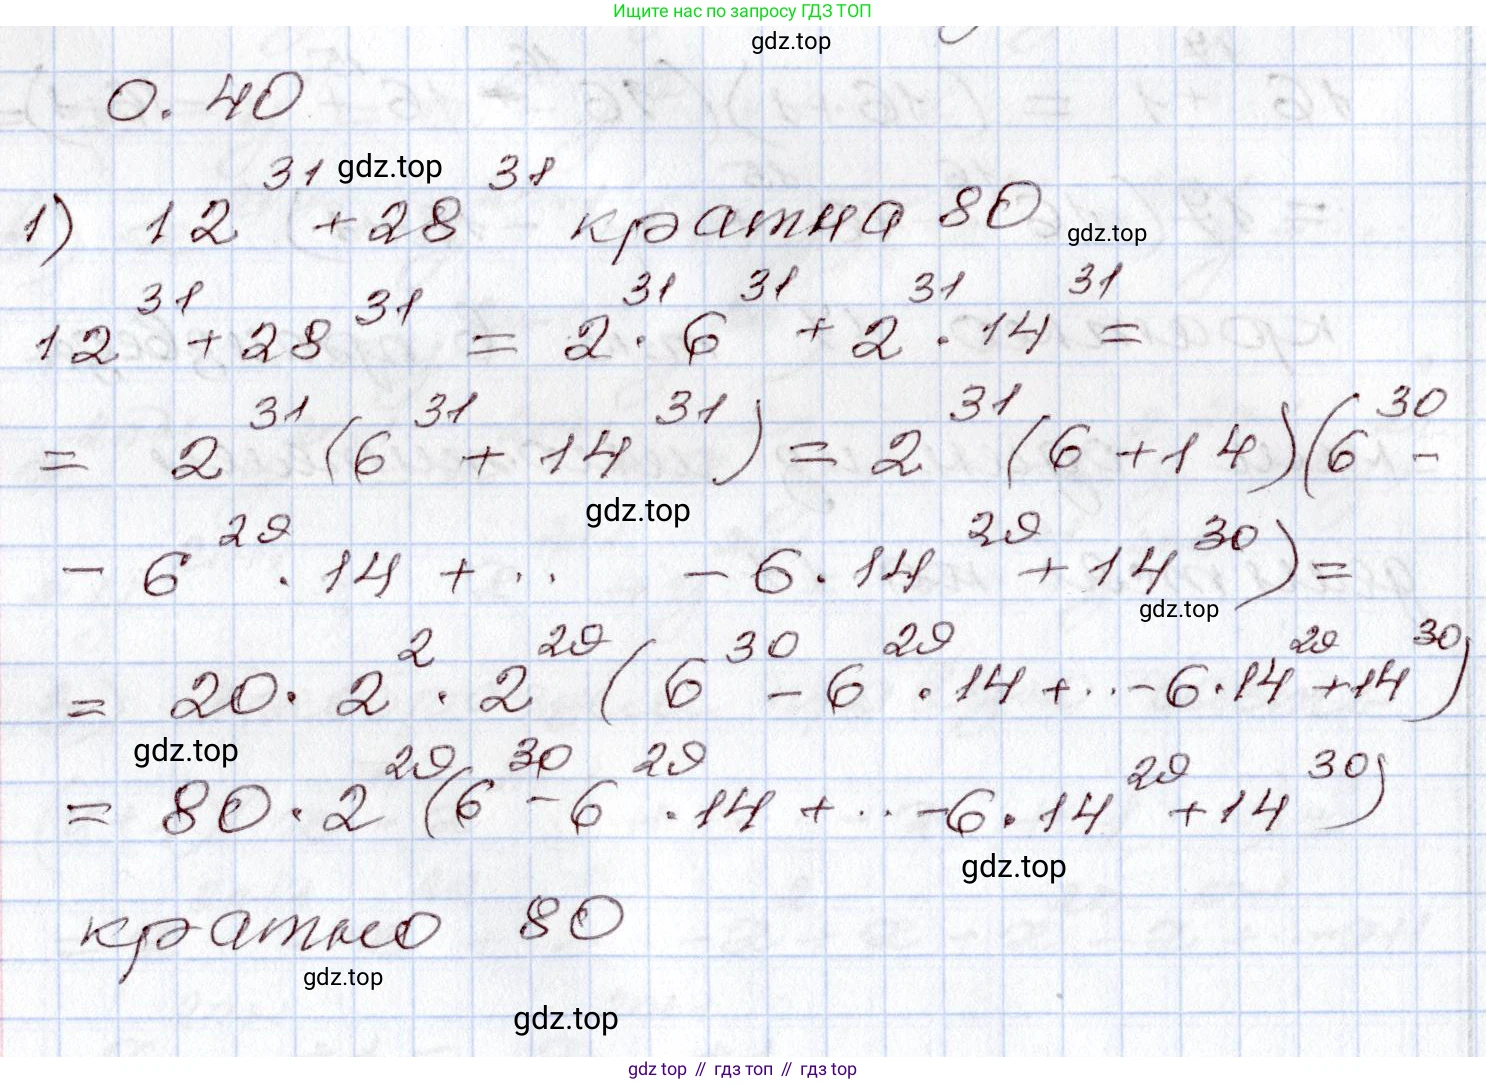 Ищите нас по запросу ГДЗ ТОП
gdz.top
0.40
gdz.top
1) 12³¹ + 28³¹ кратна 80
gdz.top
12³¹ + 28³¹ = 2³¹ · 6³¹ + 2³¹ · 14³¹ =
= 2³¹ (6³¹ + 14³¹) = 2³¹ (6 + 14)(6³⁰ -
gdz.top
- 6²⁹ · 14 + .. - 6 · 14²⁹ + 14³⁰) =
gdz.top
= 20 · 2² · 2²⁹ (6³⁰ - 6²⁹ · 14 + .. - 6 · 14²⁹ + 14³⁰)
gdz.top
= 80 · 2²⁹ (6³⁰ - 6²⁹ · 14 + .. - 6 · 14²⁹ + 14³⁰)
gdz.top
кратно 80
gdz.top
gdz.top
gdz top // гдз топ // гдз top